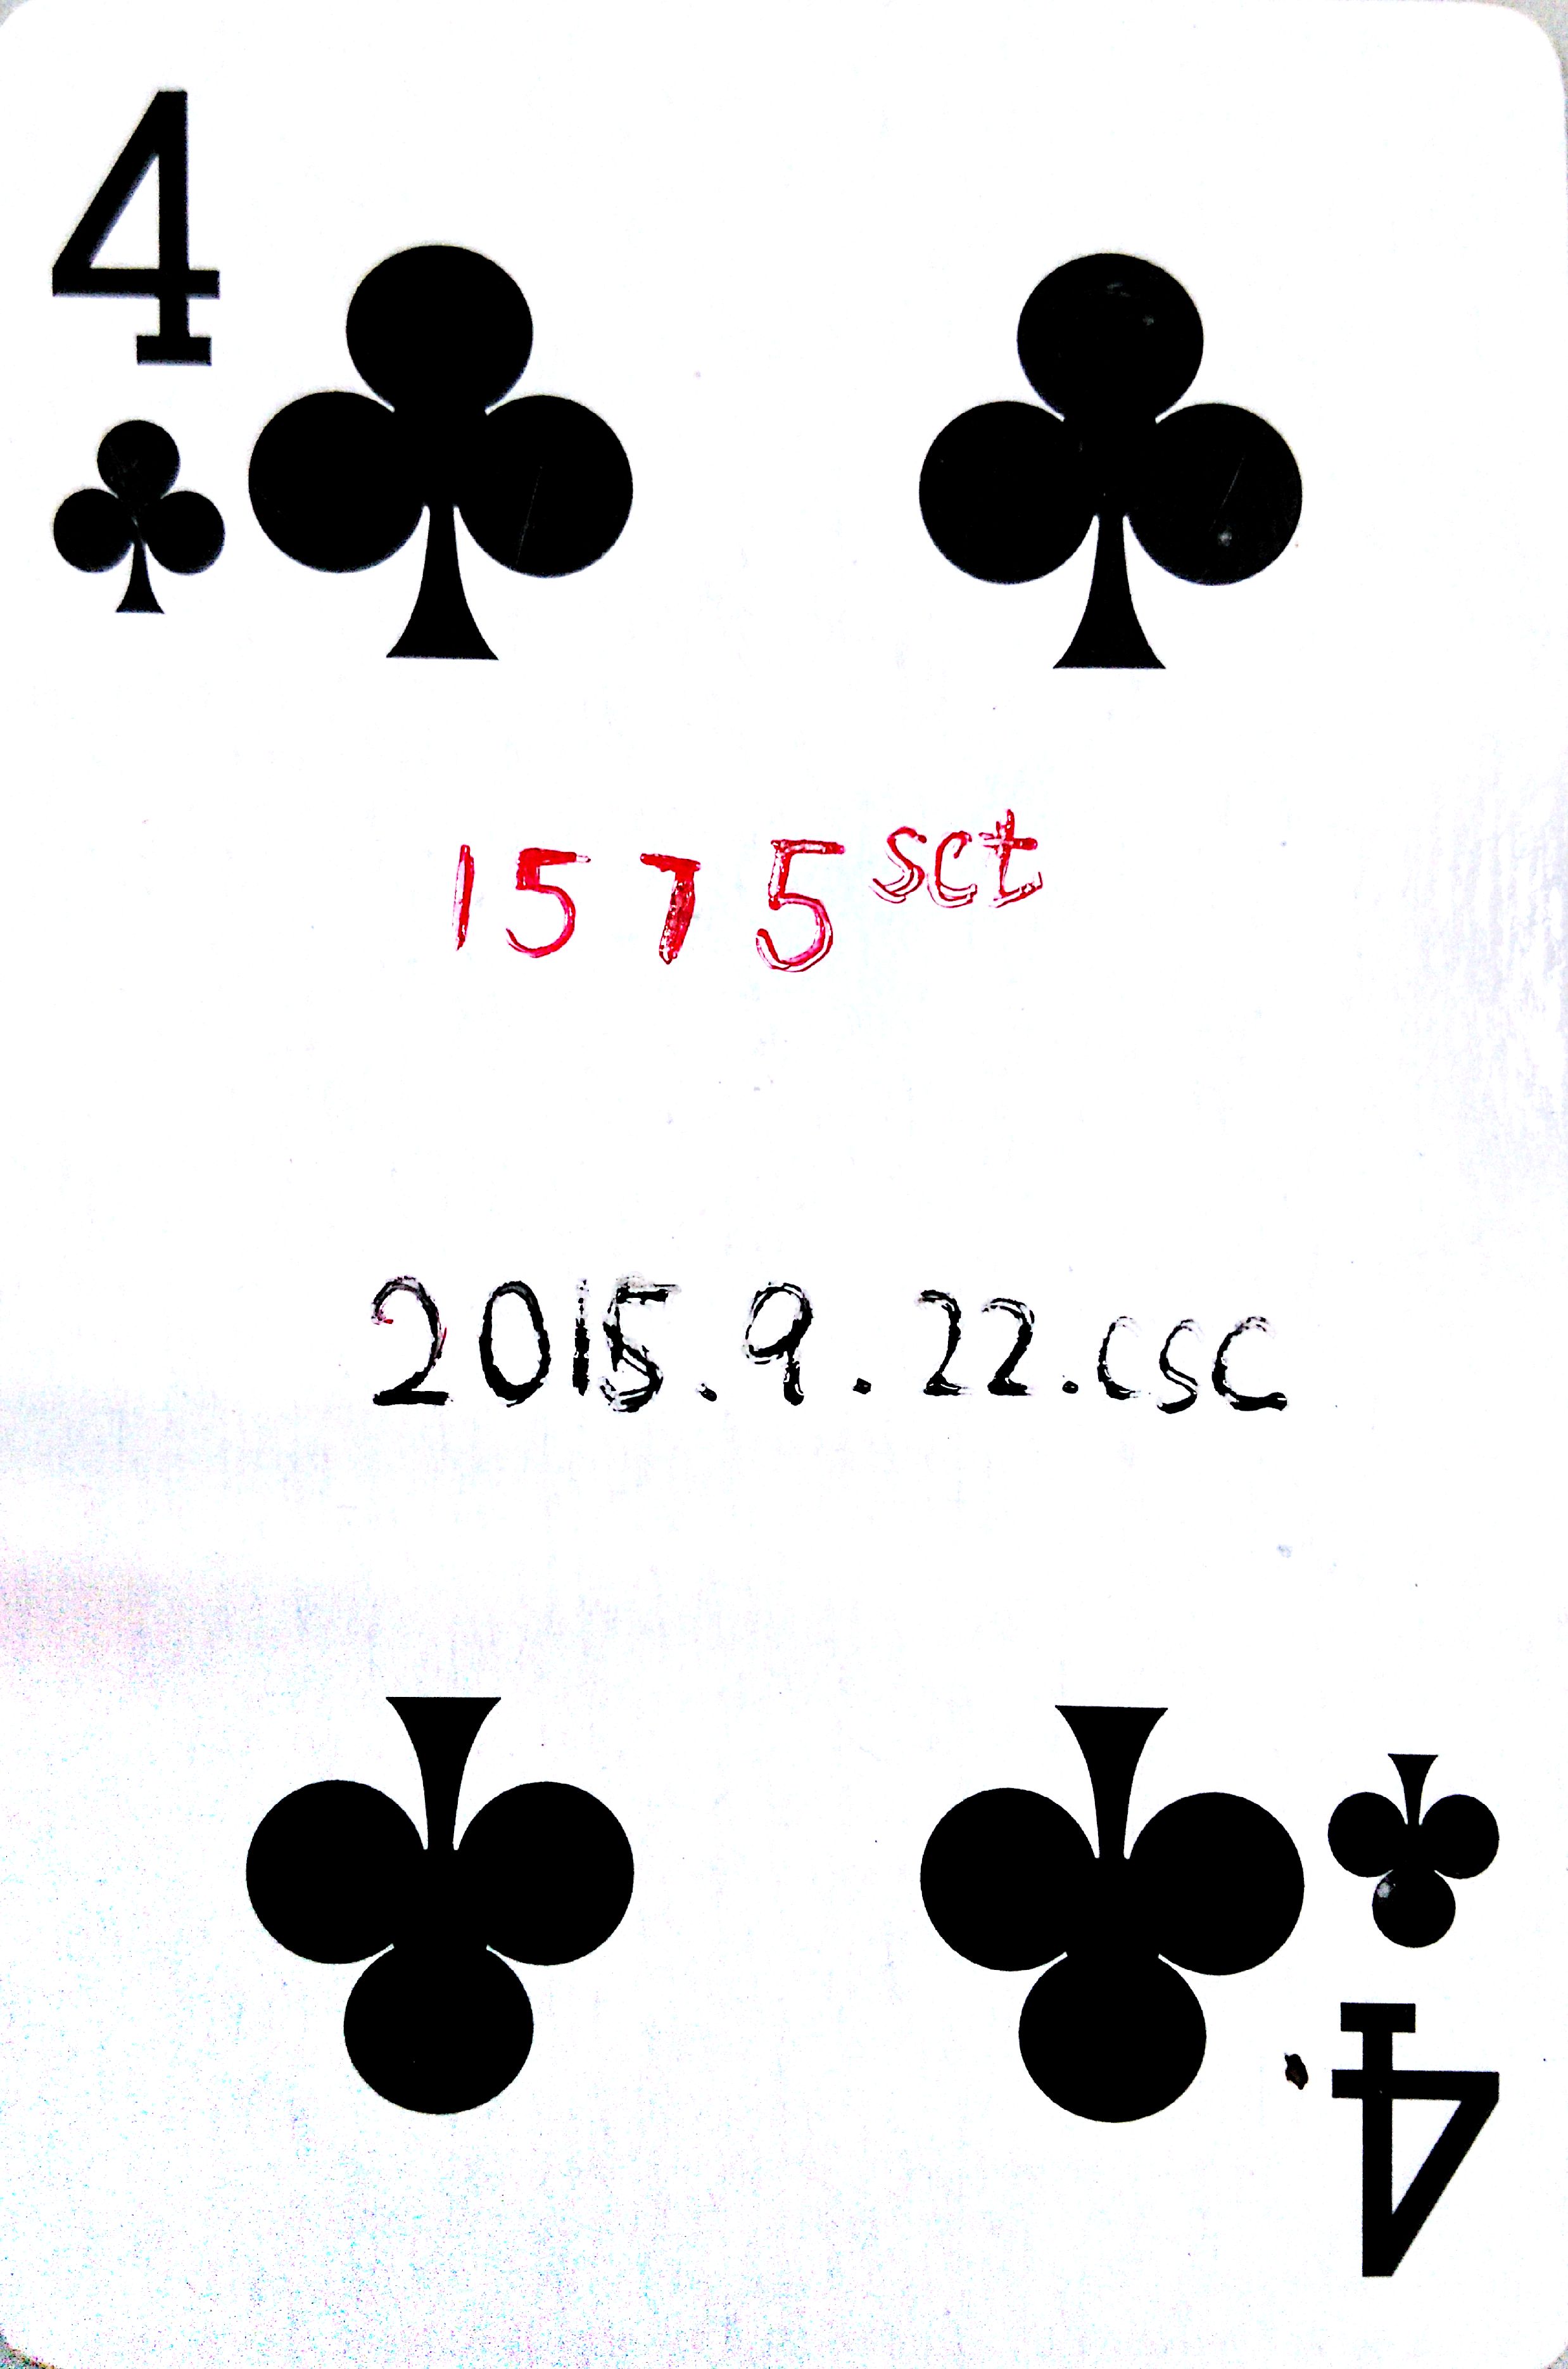 4
1575sct
2015.9.22.csc
4